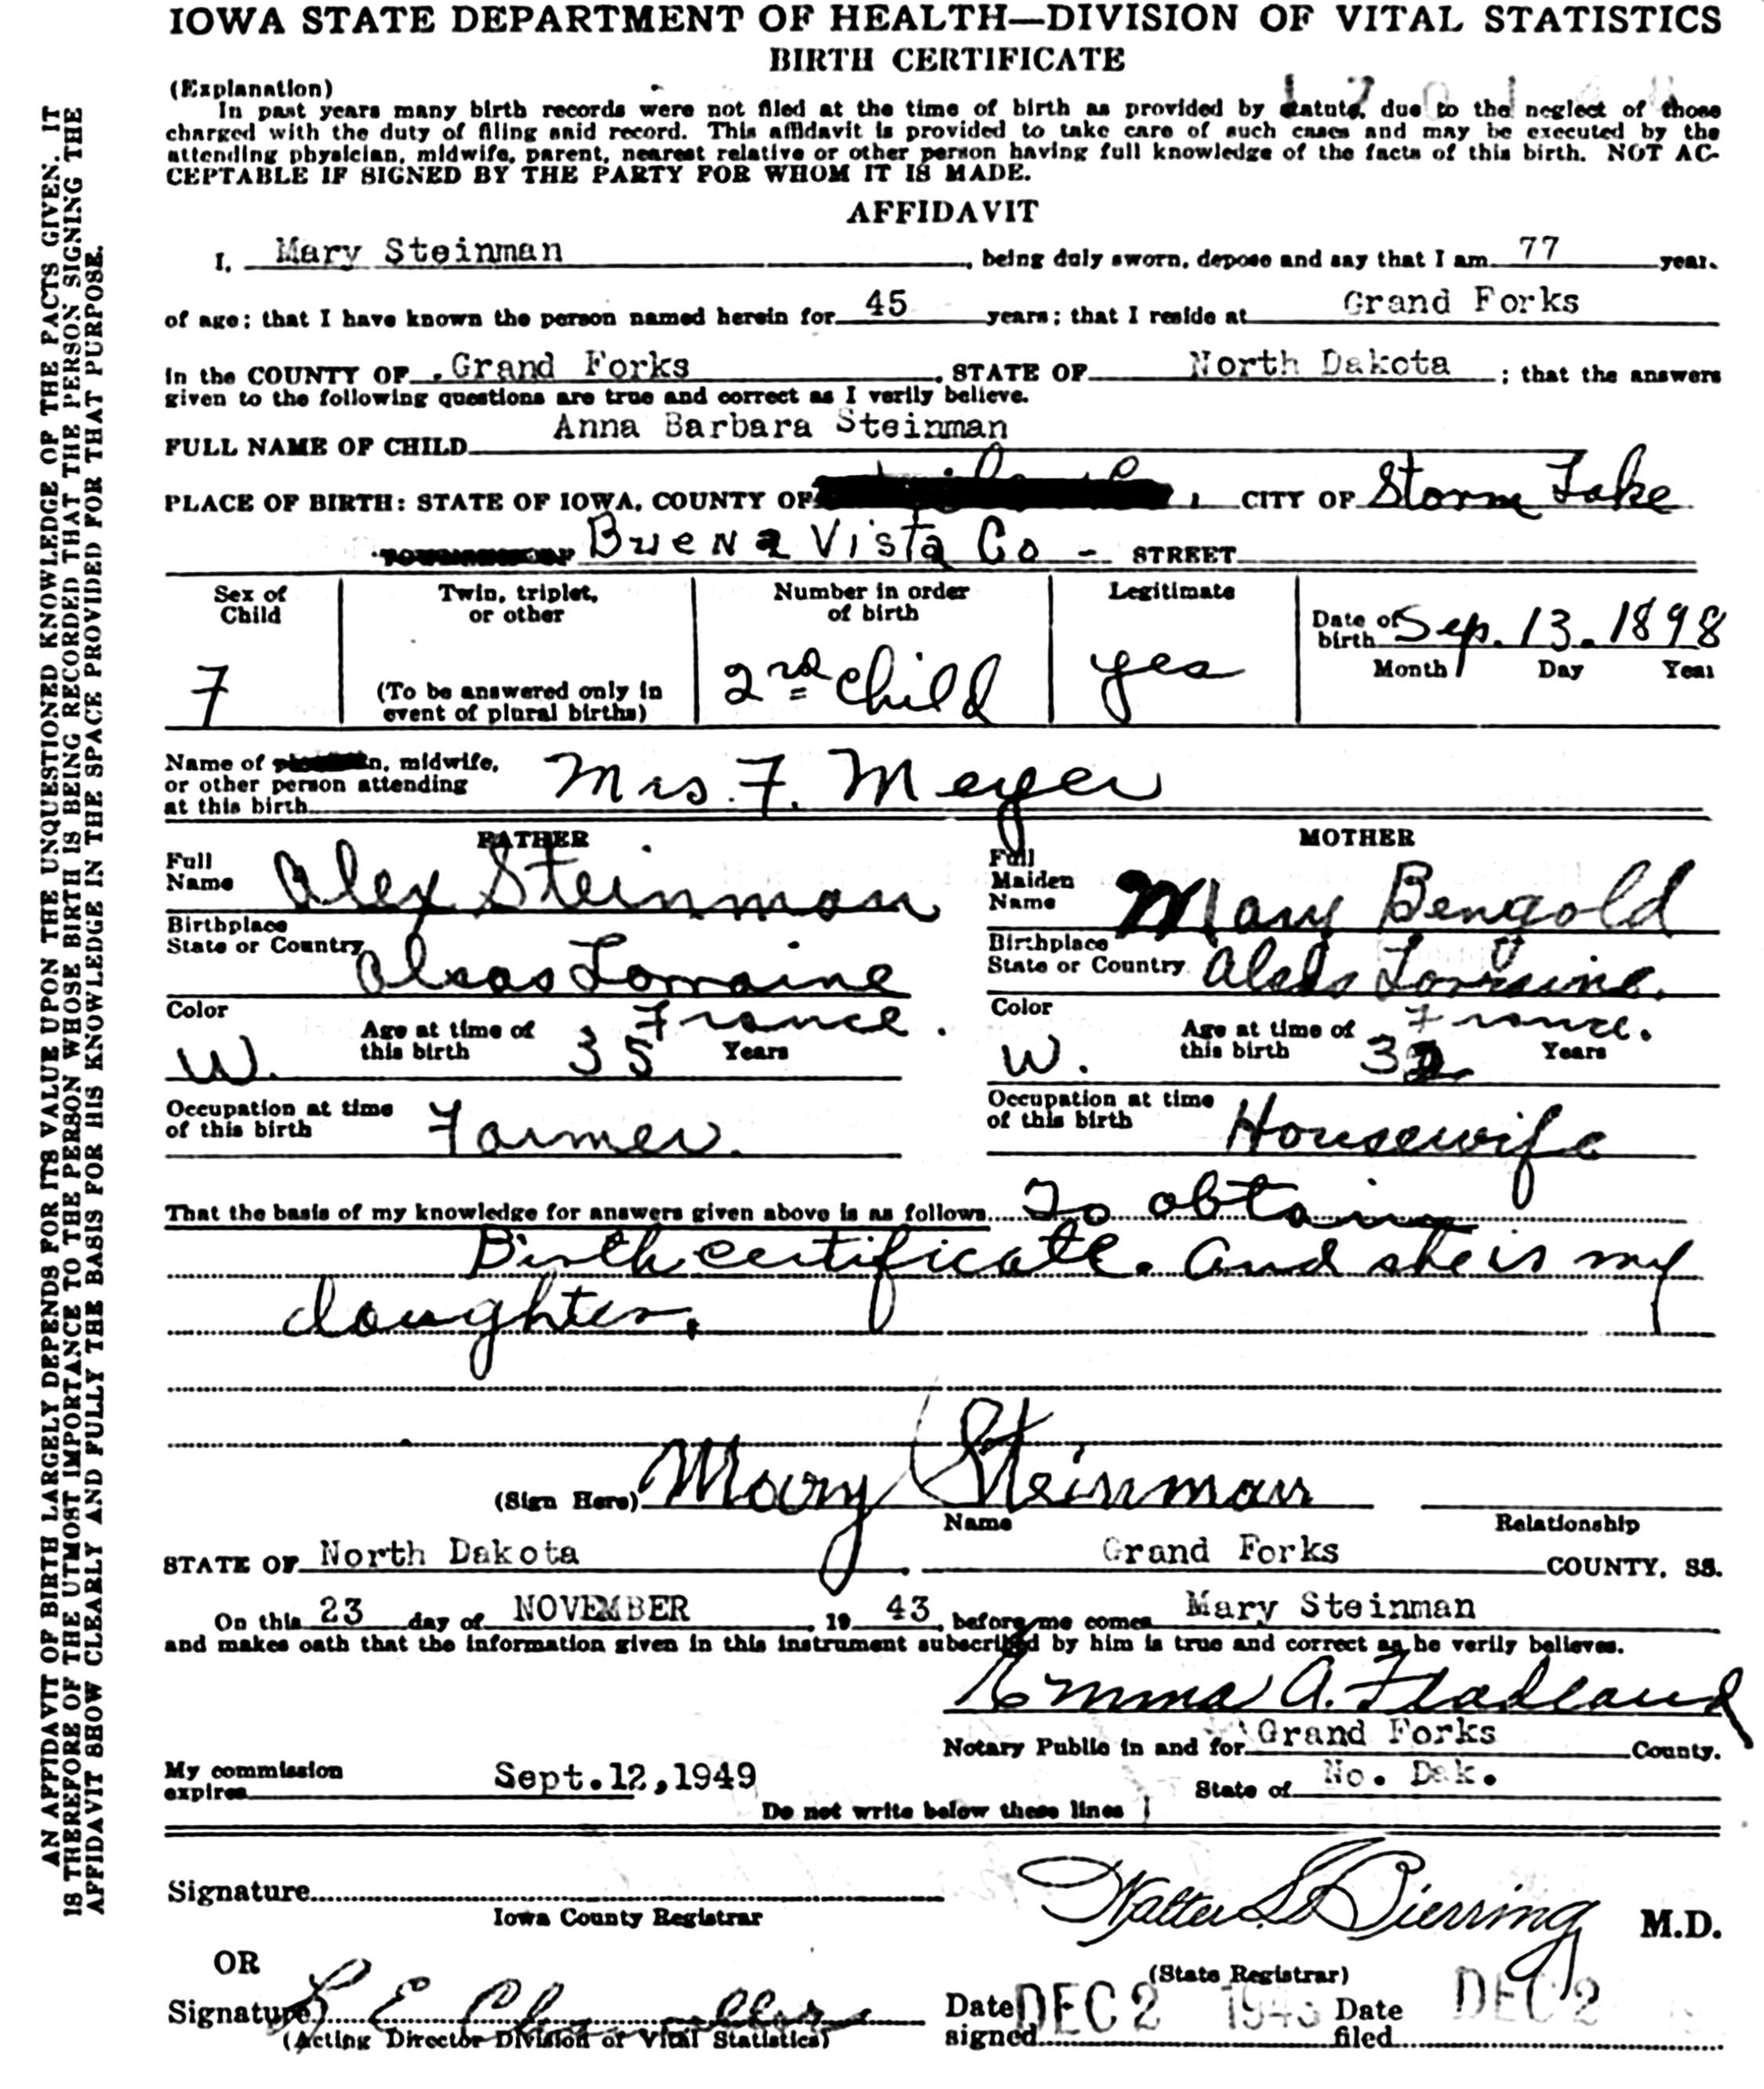 IOWA STATE DEPARTMENT OF HEALTH—DIVISION OF VITAL STATISTICS
BIRTH CERTIFICATE
(Explanation)
In past years many birth records were not filed at the time of birth as provided by statute, due to the neglect of those
charged with the duty of filing said record. This affidavit is provided to take care of such cases and may be executed by the
attending physician, midwife, parent, nearest relative or other person having full knowledge of the facts of this birth. NOT AC-
CEPTABLE IF SIGNED BY THE PARTY FOR WHOM IT IS MADE.
AFFIDAVIT
I, Mary Steinman, being duly sworn, depose and say that I am 77 year.
of age; that I have known the person named herein for 45 years; that I reside at Grand Forks
in the COUNTY OF Grand Forks, STATE OF North Dakota; that the answers
given to the following questions are true and correct as I verily believe.
FULL NAME OF CHILD Anna Barbara Steinman
PLACE OF BIRTH: STATE OF IOWA, COUNTY OF, CITY OF Storm Lake
Buena Vista Co - STREET
Sex of Child F
Twin, triplet, or other (To be answered only in event of plural births)
Number in order of birth 2rd child
Legitimate yes
Date of birth Sep. 13. 1898
Month Day Year
Name of midwife,
or other person attending Mrs. F. Meyer
at this birth
FATHER
Full Name Alex Steinman
Birthplace State or Country Alsas Lorraine
France.
Color W. Age at time of this birth 35 Years
Occupation at time of this birth Farmer.
MOTHER
Full Maiden Name Mary Bengold
Birthplace State or Country Alsas Lorraine.
France.
Color W. Age at time of this birth 32 Years
Occupation at time of this birth Housewife
That the basis of my knowledge for answers given above is as follows To obtain
Birth certificate. And she is my
daughter.
(Sign Here) Mary Steinman
Name Relationship
STATE OF North Dakota, Grand Forks COUNTY, SS.
On this 23 day of NOVEMBER, 19 43, before me comes Mary Steinman
and makes oath that the information given in this instrument subscribed by him is true and correct as he verily believes.
Emma A. Fladland
Notary Public in and for Grand Forks County.
My commission expires Sept.12,1949
State of No. Dak.
Do not write below these lines
Signature
Iowa County Registrar
Walter L Bierring M.D.
OR
(State Registrar)
Signature L E Chancellor
(Acting Director Division of Vital Statistics)
Date signed DEC 2 1943 Date filed DEC 2
AN AFFIDAVIT OF BIRTH LARGELY DEPENDS FOR ITS VALUE UPON THE UNQUESTIONED KNOWLEDGE OF THE FACTS GIVEN. IT
IS THEREFORE OF THE UTMOST IMPORTANCE TO THE PERSON WHOSE BIRTH IS BEING RECORDED THAT THE PERSON SIGNING THE
AFFIDAVIT SHOW CLEARLY AND FULLY THE BASIS FOR HIS KNOWLEDGE IN THE SPACE PROVIDED FOR THAT PURPOSE.